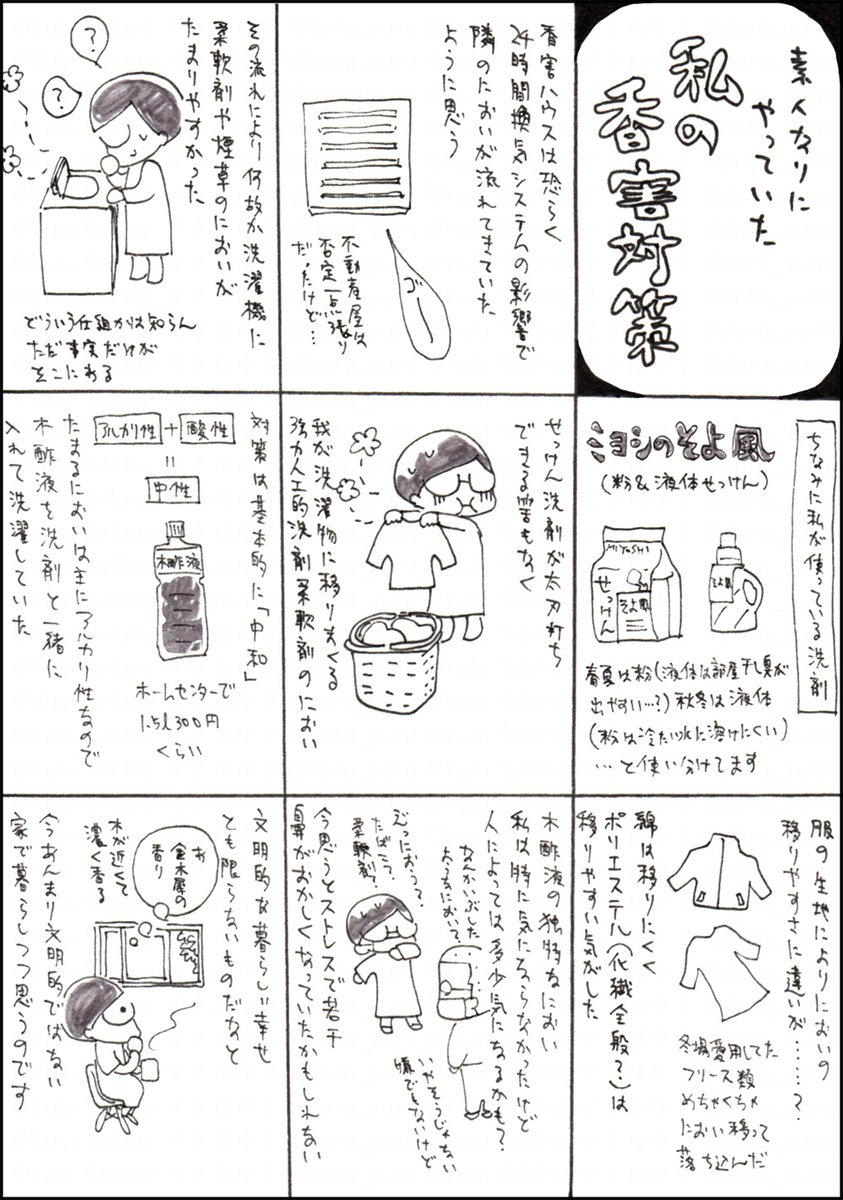 素人なりに
やっていた
私の
香害対策
香害ハウスは恐らく
24時間換気システムの影響で
隣のにおいが流れてきていた
ように思う
ゴー
不動産屋は
否定一点張り
だったけど…
その流れにより何故か洗濯機に
柔軟剤や煙草のにおいが
たまりやすかった
?
?
どういう仕組かは知らん
ただ事実だけが
そこにある
ちなみに私が使っている洗剤
ミヨシのそよ風
(粉&液体せっけん)
MIYOSHI
せっけん
そよ風
そよ風
春夏は粉(液体は部屋干し臭が
出やすい…?)秋冬は液体
(粉は冷たい水に溶けにくい)
…と使い分けてます
せっけん洗剤が太刀打ち
できる筈もなく
我が洗濯物に移りまくる
強力人工的洗剤柔軟剤のにおい
対策は基本的に「中和」
アルカリ性+酸性
=
中性
木酢液
ホームセンターで
1.5l 300円
くらい
たまるにおいは主にアルカリ性なので
木酢液を洗剤と一緒に
入れて洗濯していた
服の生地によりにおいの
移りやすさに違いが……?
冬場愛用してた
フリース類
めちゃくちゃ
におい移って
落ち込んだ
綿は移りにくく
ポリエステル(化繊全般?)は
移りやすい気がした
木酢液の独特なにおい
私は特に気にならなかったけど
人によっては多少気になるかも?
なんかいぶした
ようなにおいで
むっにおって?
たばこ?
柔軟剤?
いやそうじゃない
嫌でもないけど
今思うとストレスで若干
鼻がおかしくなっていたかもしれない
文明的な暮らし=幸せ
とも限らないものだなと
お
金木犀の
香り
木が近くて
濃く香る
今あんまり文明的ではない
家で暮らしつつ思うのです